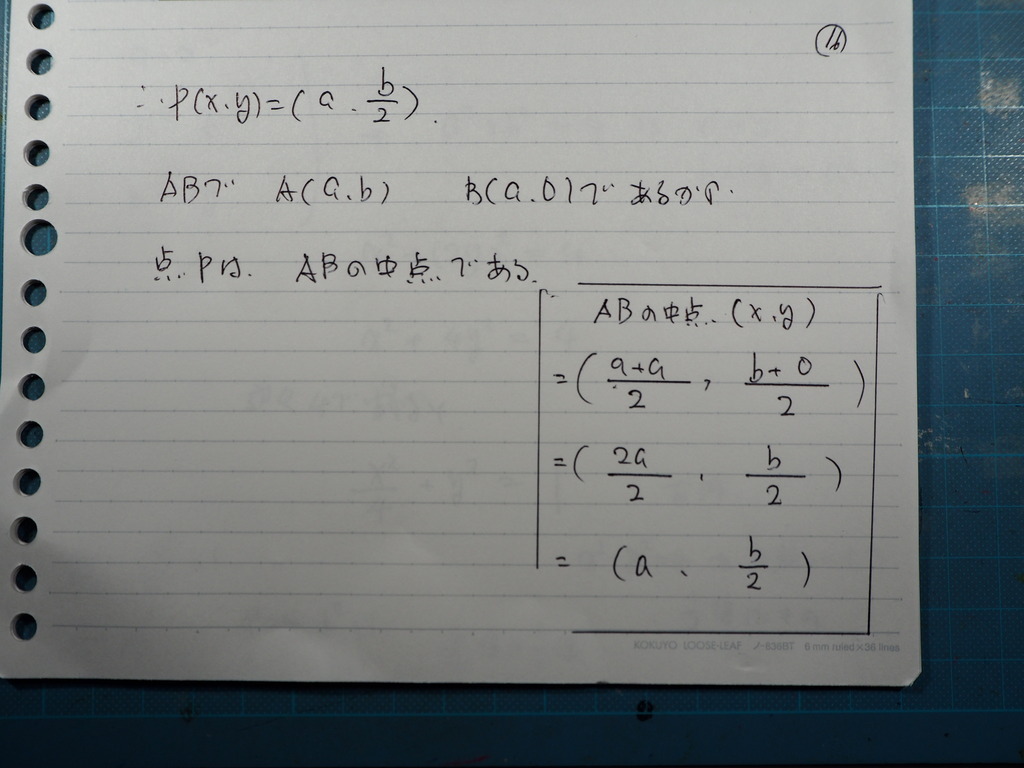 ⑯
∴ P(x、y)=(a、b/2).
ABで A(a、b) B(a、0)であるから、
点Pは、ABの中点である。
ABの中点、(x、y)
=( a+a/2 , b+0/2 )
=( 2a/2 、 b/2 )
= (a 、 b/2 )
KOKUYO LOOSE-LEAF ノ-836BT 6 mm ruled×36 lines